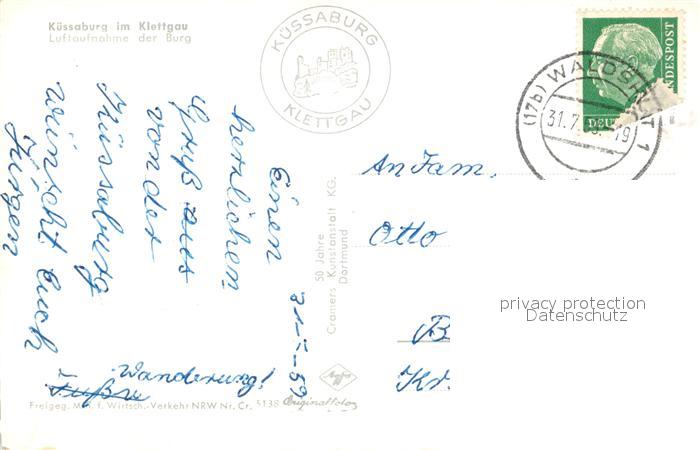 Küssaburg im Klettgau
Luftaufnahme der Burg
KÜSSABURG
KLETTGAU
DEUTSCHE BUNDESPOST
(17b) WALDSHUT 1
31.7. -19
31-7-59
Einen
herzlichen
Gruß aus
von der
Küssaburg
wünscht Euch
Jürgen
Fußw
Wanderung!
An Fam.
Otto
B
Kr.
50 Jahre
Cramers Kunstanstalt KG.
Dortmund
privacy protection
Datenschutz
Agfa
Freigeg. Min. f. Wirtsch.-Verkehr NRW Nr. Cr. 5138 Originalfoto